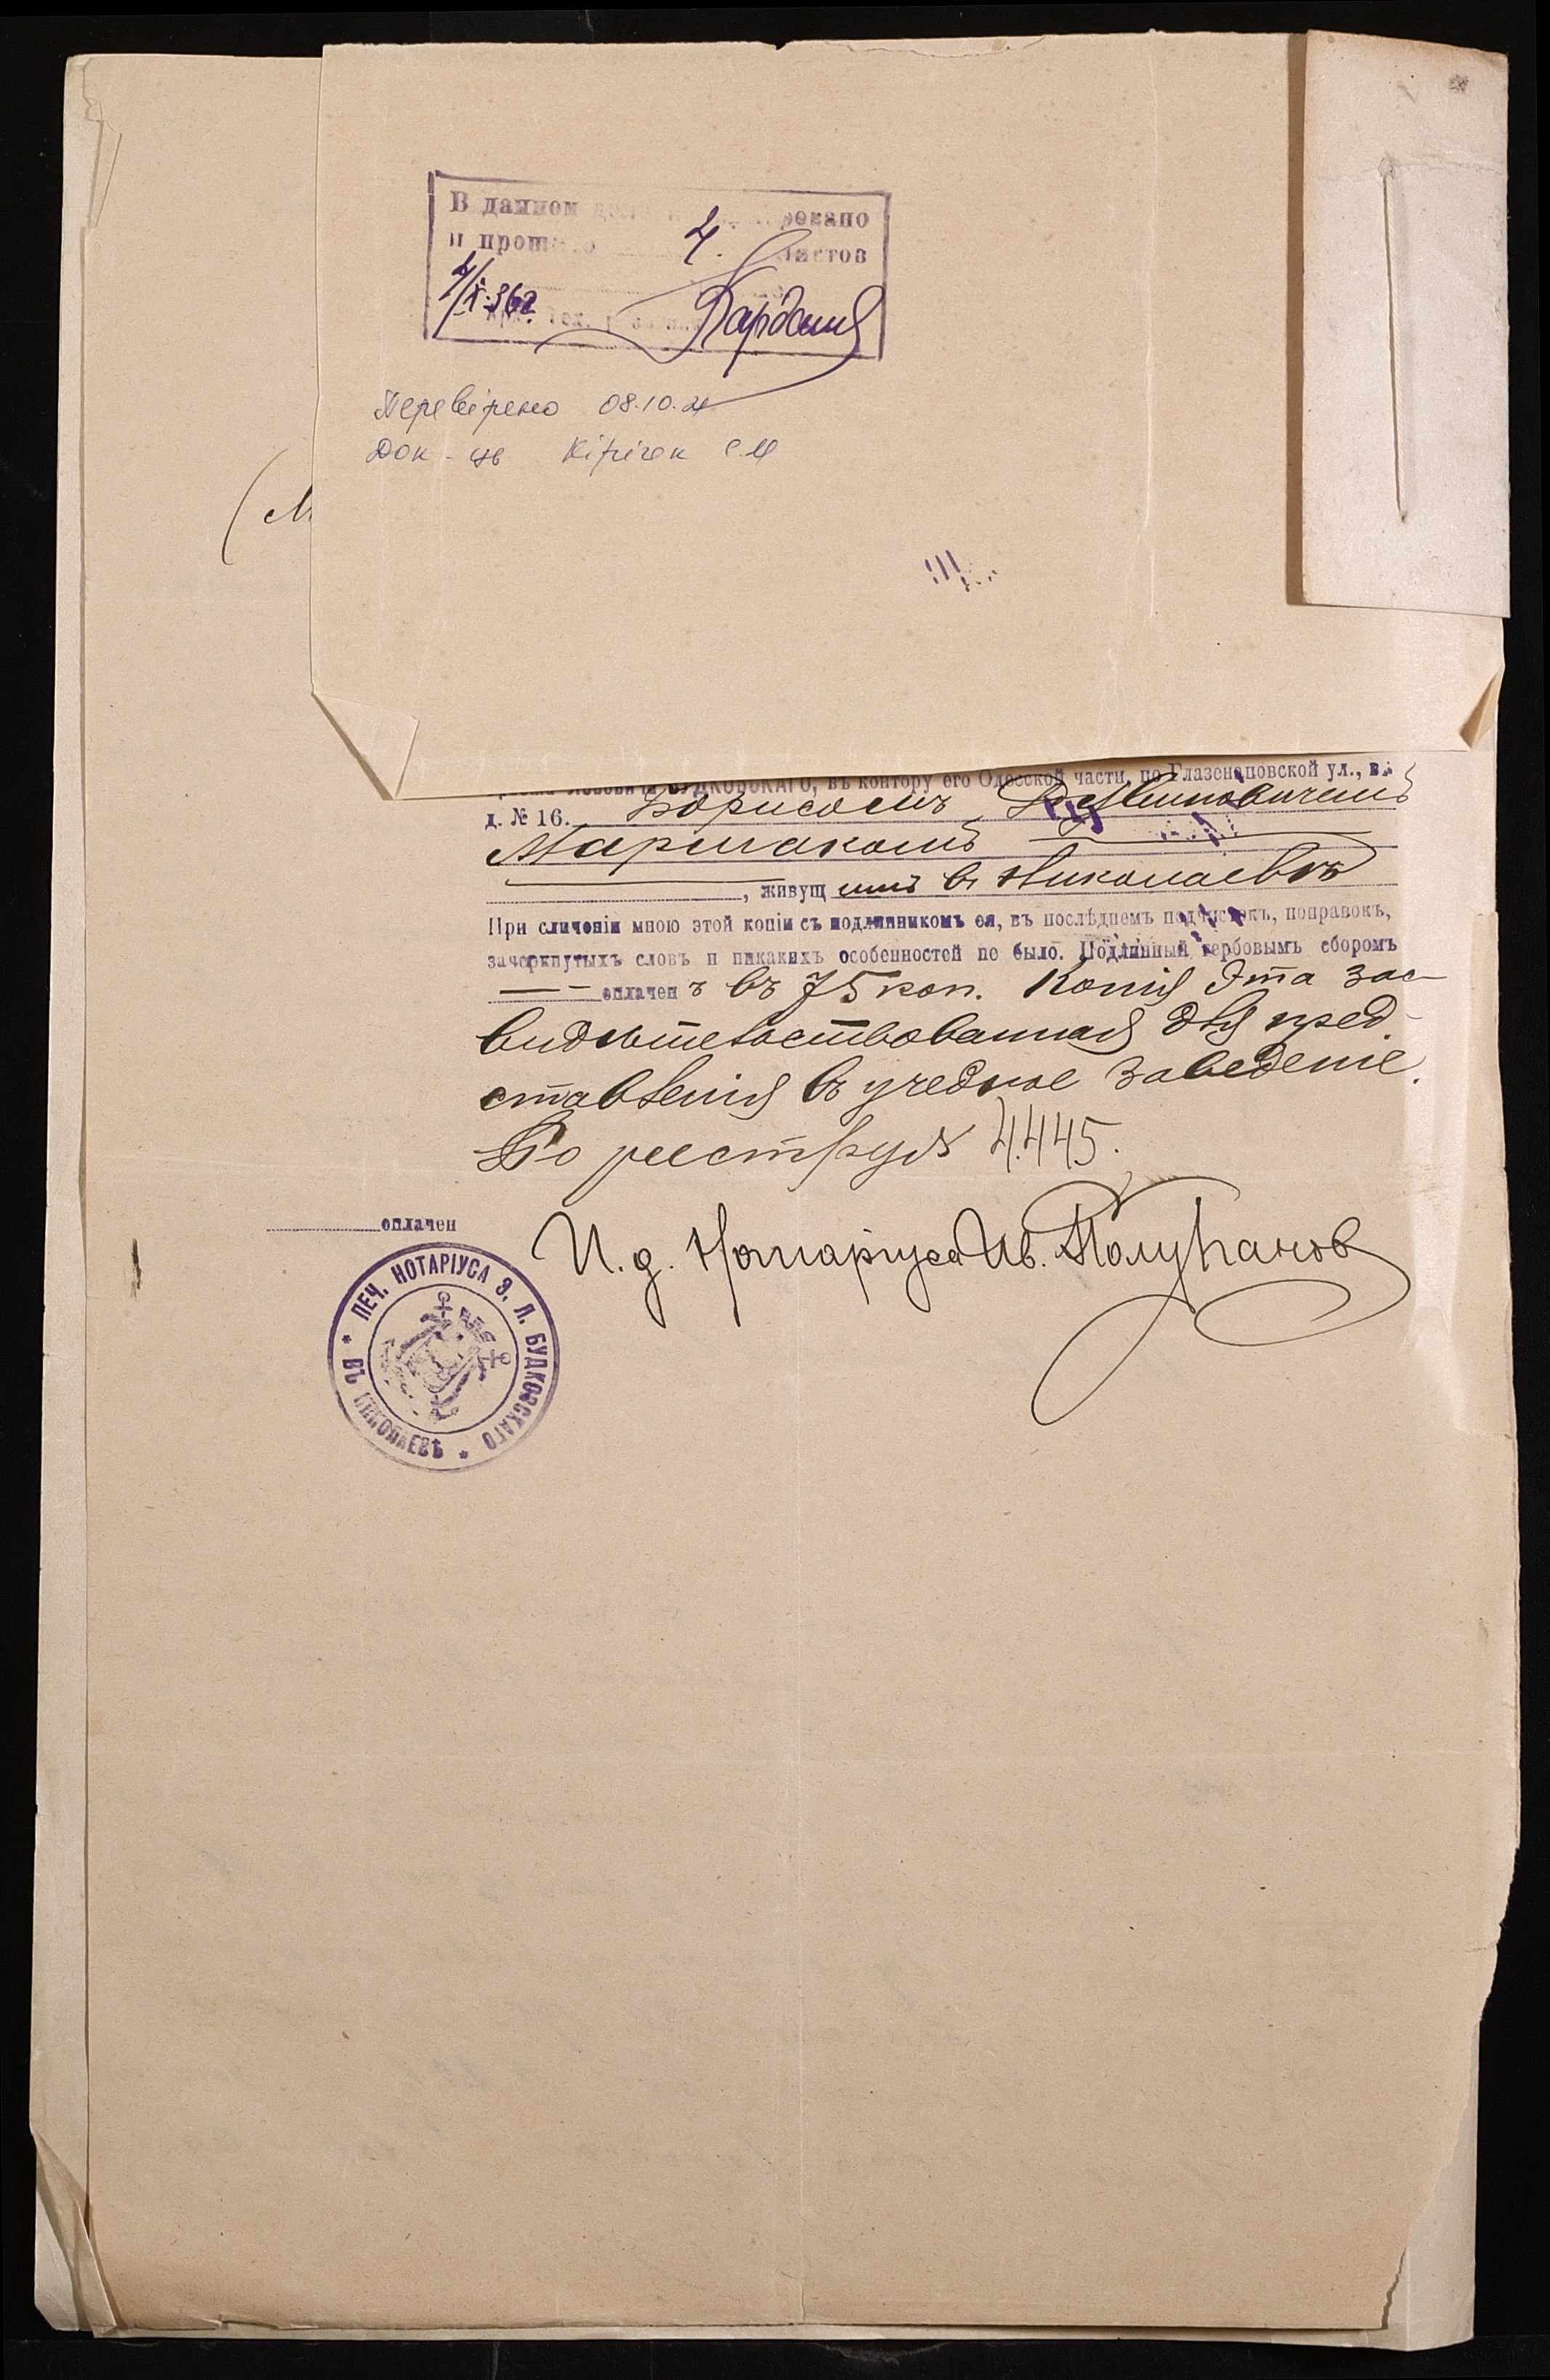 В данном
и прош 4. листов
4/X-36г.
Перевірено 08.10.21
Док-зн Кірічек С М
(М
БУДКОВСКАГО, въ контору его Одесской части, по Глазенаповской ул., въ
д. № 16. Борисомъ
Маршакомъ
, живущ имъ въ Николаевѣ
При сличеніи мною этой копіи съ подлинникомъ ея, въ послѣднемъ подчистокъ, поправокъ,
зачеркнутыхъ словъ и никакихъ особенностей не было. Подлинный гербовымъ сборомъ
оплачен ъ въ 75 коп. Копія эта зас-
видѣтельствованная для пред-
ставленія въ учебное заведеніе.
По реестру № 4.445.
оплачен
И. д. Нотаріуса Ив. Полупанов
ПЕЧ. НОТАРІУСА Э. Л. БУДКОВСКАГО * ВЪ НИКОЛАЕВѢ *